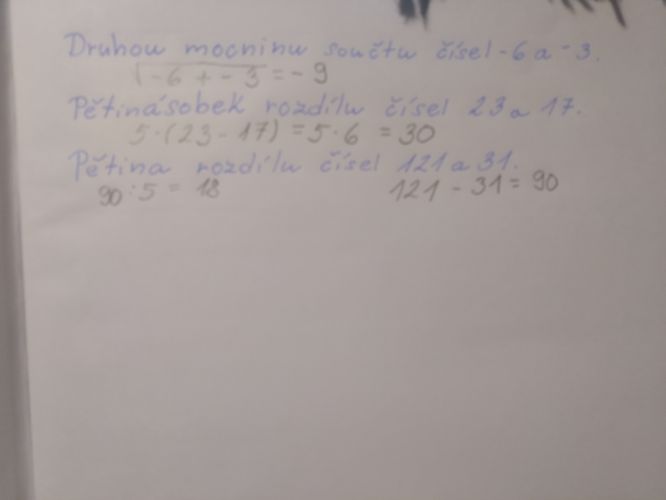 Druhou mocninu součtu čísel -6 a -3.
√-6 + -3 = -9
Pětinásobek rozdílu čísel 23 a 17.
5·(23-17) = 5·6 = 30
Pětina rozdílu čísel 121 a 31.
90:5 = 18 121 - 31 = 90